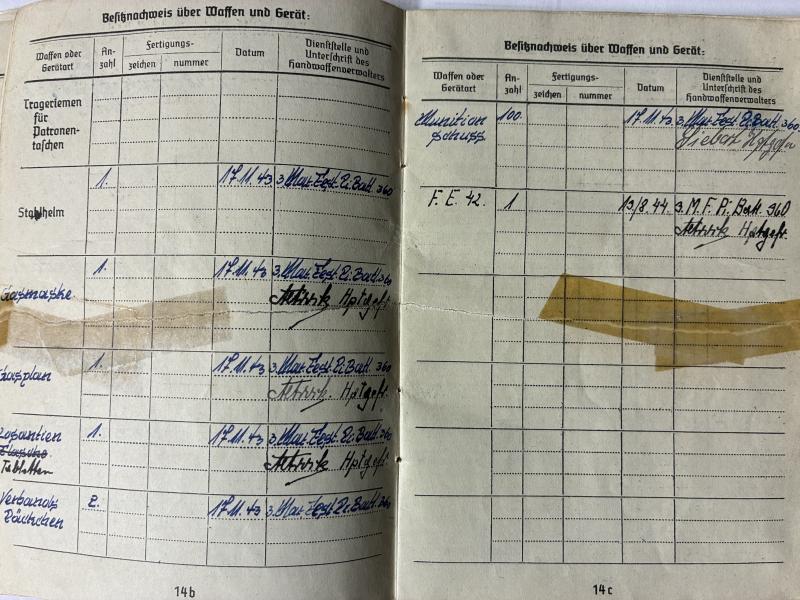 Besitznachweis über Waffen und Gerät:
Waffen oder Gerätart
An-zahl
Fertigungs-
zeichen
nummer
Datum
Dienststelle und Unterschrift des Handwaffenverwalters
Trageriemen
für
Patronen-
taschen
Stahlhelm 1. 17.11.43 3. Mar. Fest. Pi. Batl. 360
Gasmaske 1. 17.11.43 3. Mar. Fest. Pi. Batl. 360
Hptgefr.
Gasplan 1. 17.11.43 3. Mar. Fest. Pi. Batl. 360
Hptgefr.
Losantien 1. 17.11.43 3. Mar. Fest. Pi. Batl. 360
Tabletten Hptgefr.
Verbands 2. 17.11.43 3. Mar. Fest. Pi. Batl. 360
Päckchen
14b
Besitznachweis über Waffen und Gerät:
Waffen oder Gerätart
An-zahl
Fertigungs-
zeichen
nummer
Datum
Dienststelle und Unterschrift des Handwaffenverwalters
Munition 100. 17.11.43 3. Mar. Fest. Pi. Batl. 360
schuss
F. E. 42. 1 13/8.44 3. M. F. Pi. Batl. 360
Hptgefr.
14c